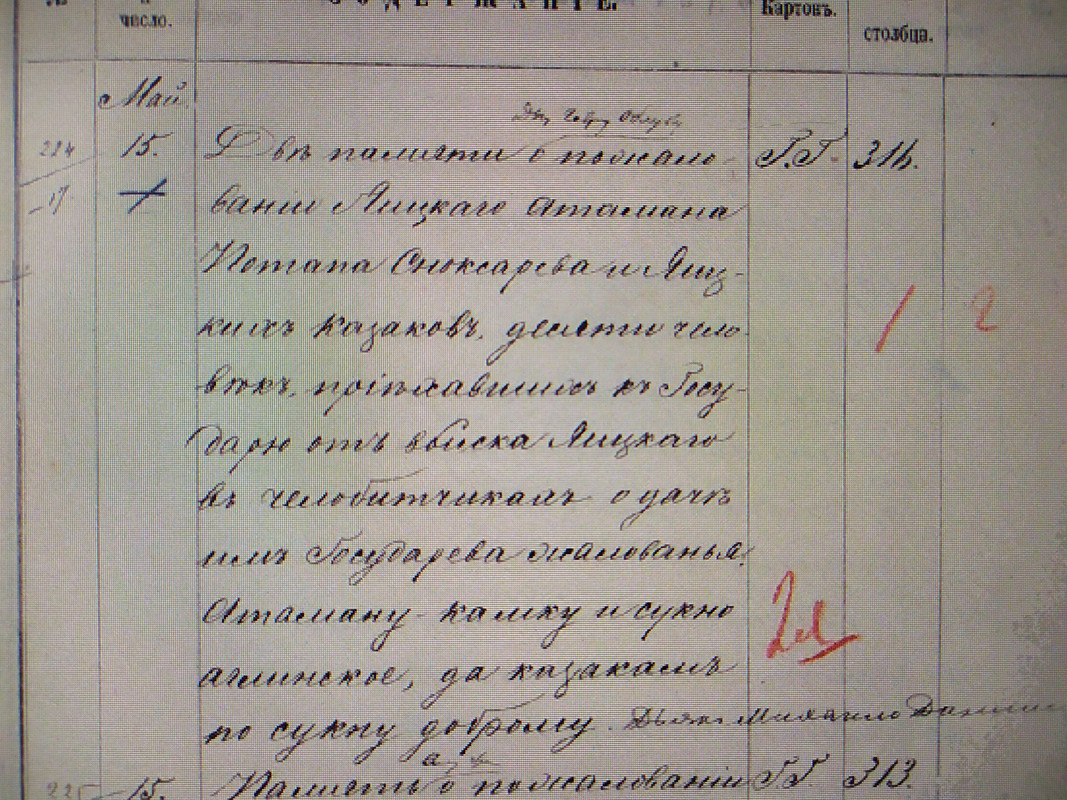 и
число.
СОДЕРЖАНІЕ.
Картонъ.
столбца.
Май
224 15. Двѣ памяти о пожало- Г.Г. 314.
17
ваніи Яицкаго Атамана
Потапа Снюксарева и Яиц-
кихъ Казаковъ, десяти чело-
вѣкъ, пріѣхавшихъ къ Госу-
дарю отъ войска Яицкаго
въ челобитчикахъ о дачѣ
имъ Государева жалованья:
Атаману камку и сукно
аглинское, да казакамъ
по сукну доброму. Дьякъ Михайло
1 2
225 15. Память о пожалованіи Г.Г. 313.